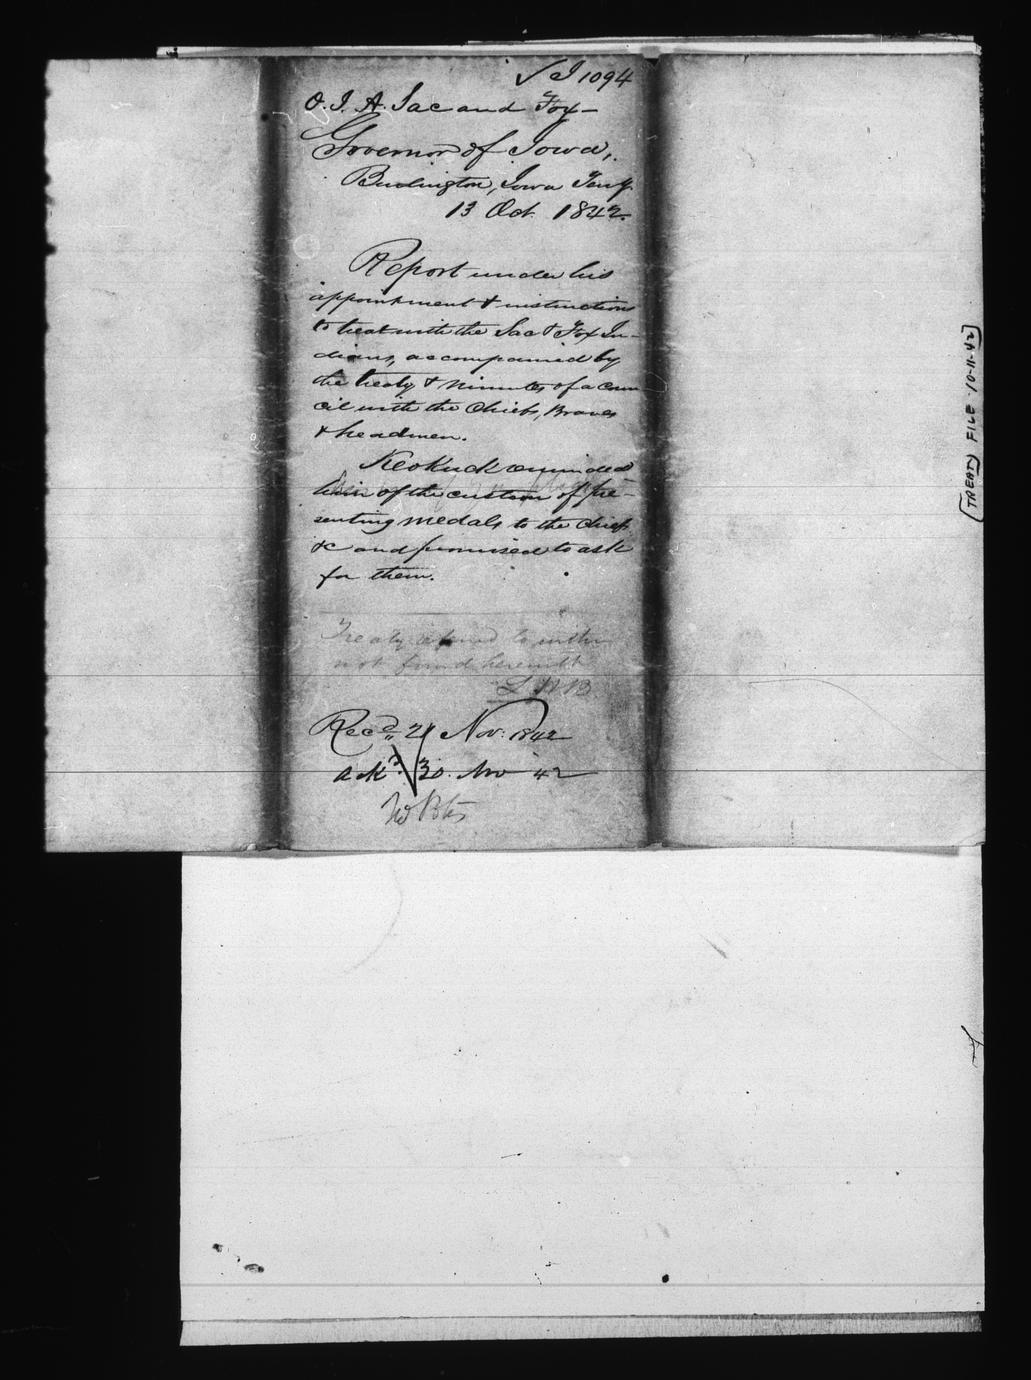 ✓ I 1094
O. I. A. Sac and Fox -
Governor of Iowa,
Burlington, Iowa Terry.
13 Oct. 1842.
Report under his
appointment & instructions
to treat with the Sac & Fox In-
dians, accompanied by
the treaty & minutes of a coun
cil with the Chiefs, Braves
& headmen.
Keokuck reminded
him of the custom of pre-
senting medals to the chiefs
&c and promised to ask
for them.
Treaty referred to within
not found herewith
Recd 21 Nov. 1842
ackd 30. Nov 42
(TREATY FILE 10-11-42)